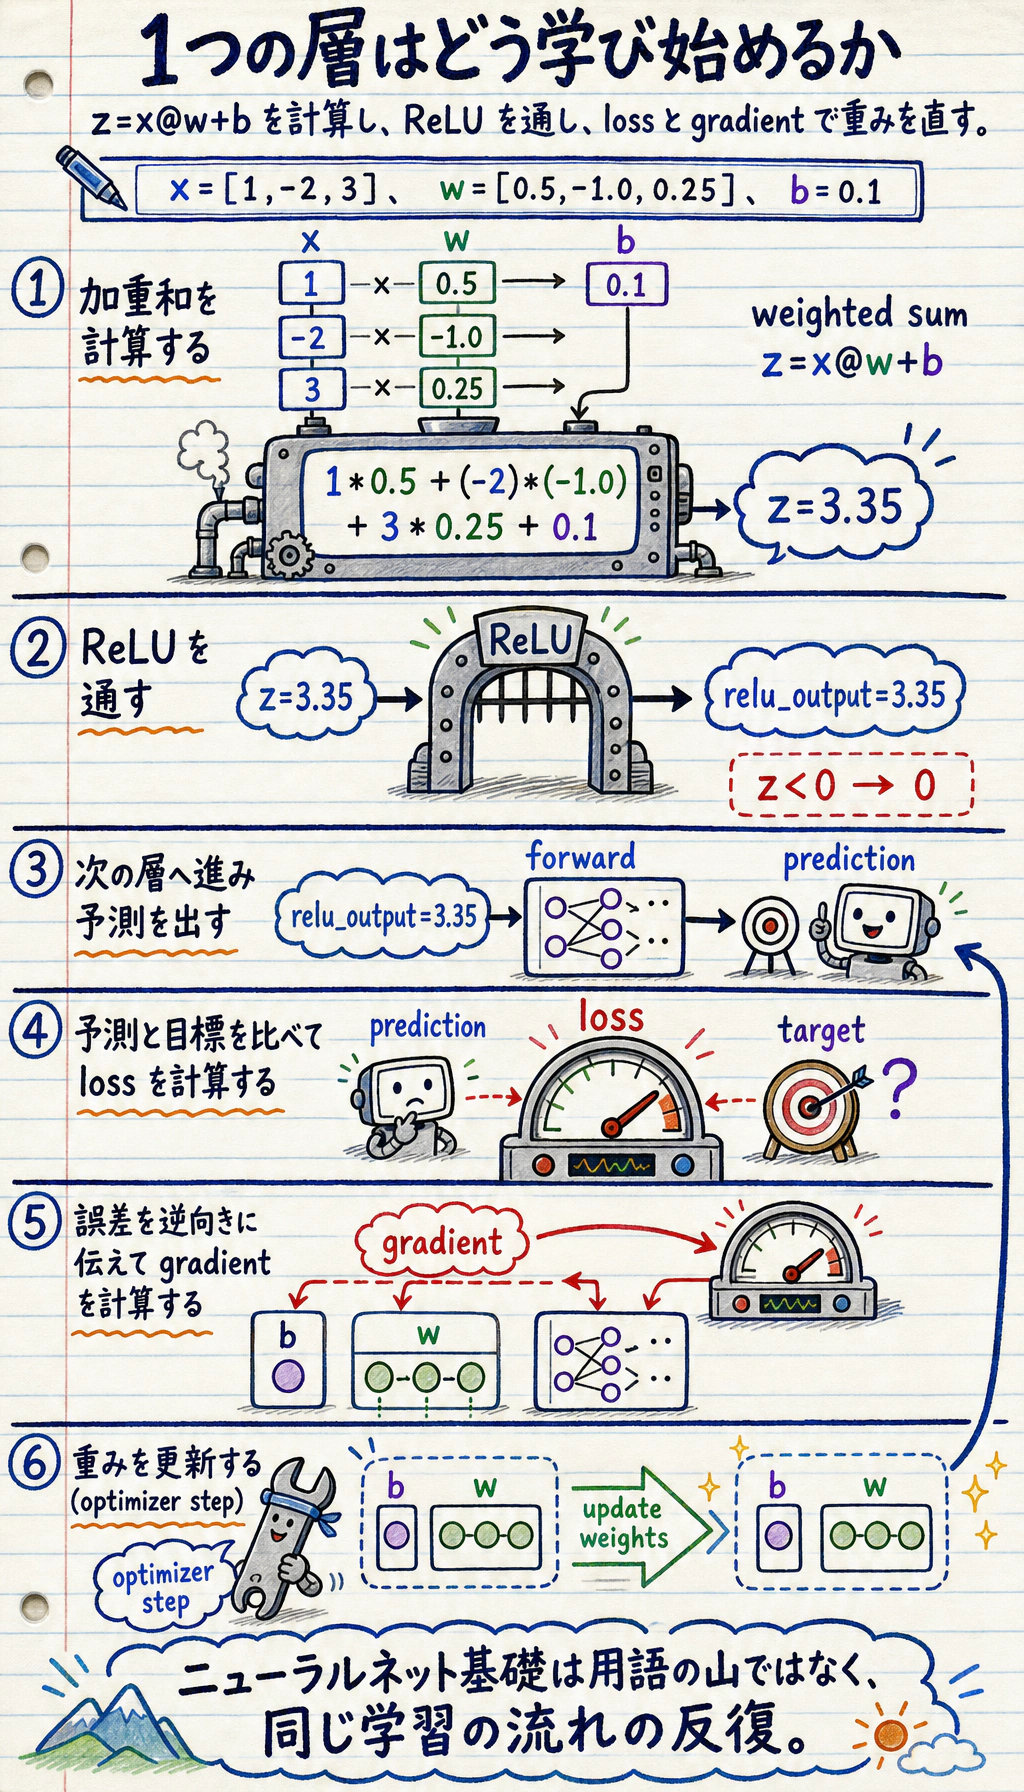 1つの層はどう学び始めるか
z=x@w+b を計算し、ReLU を通し、loss と gradient で重みを直す。
x=[1,-2,3]、 w=[0.5,-1.0,0.25]、 b=0.1
x w b
① 加重和を
計算する
1 × 0.5 → 0.1
-2 × -1.0 →
3 × 0.25 →
weighted sum
z=x@w+b
1*0.5+(-2)*(-1.0)
+3*0.25+0.1
z=3.35
② ReLU を
通す
z=3.35
ReLU
relu_output=3.35
z<0 → 0
③ 次の層へ進み
予測を出す
relu_output=3.35
forward
prediction
④ 予測と目標を比べて
loss を計算する
prediction
loss
target
?
⑤ 誤差を逆向きに
伝えて gradient
を計算する
gradient
b
w
⑥ 重みを更新する
(optimizer step)
optimizer
step
b w
update
weights
b w
ニューラルネット基礎は用語の山ではなく、
同じ学習の流れの反復。